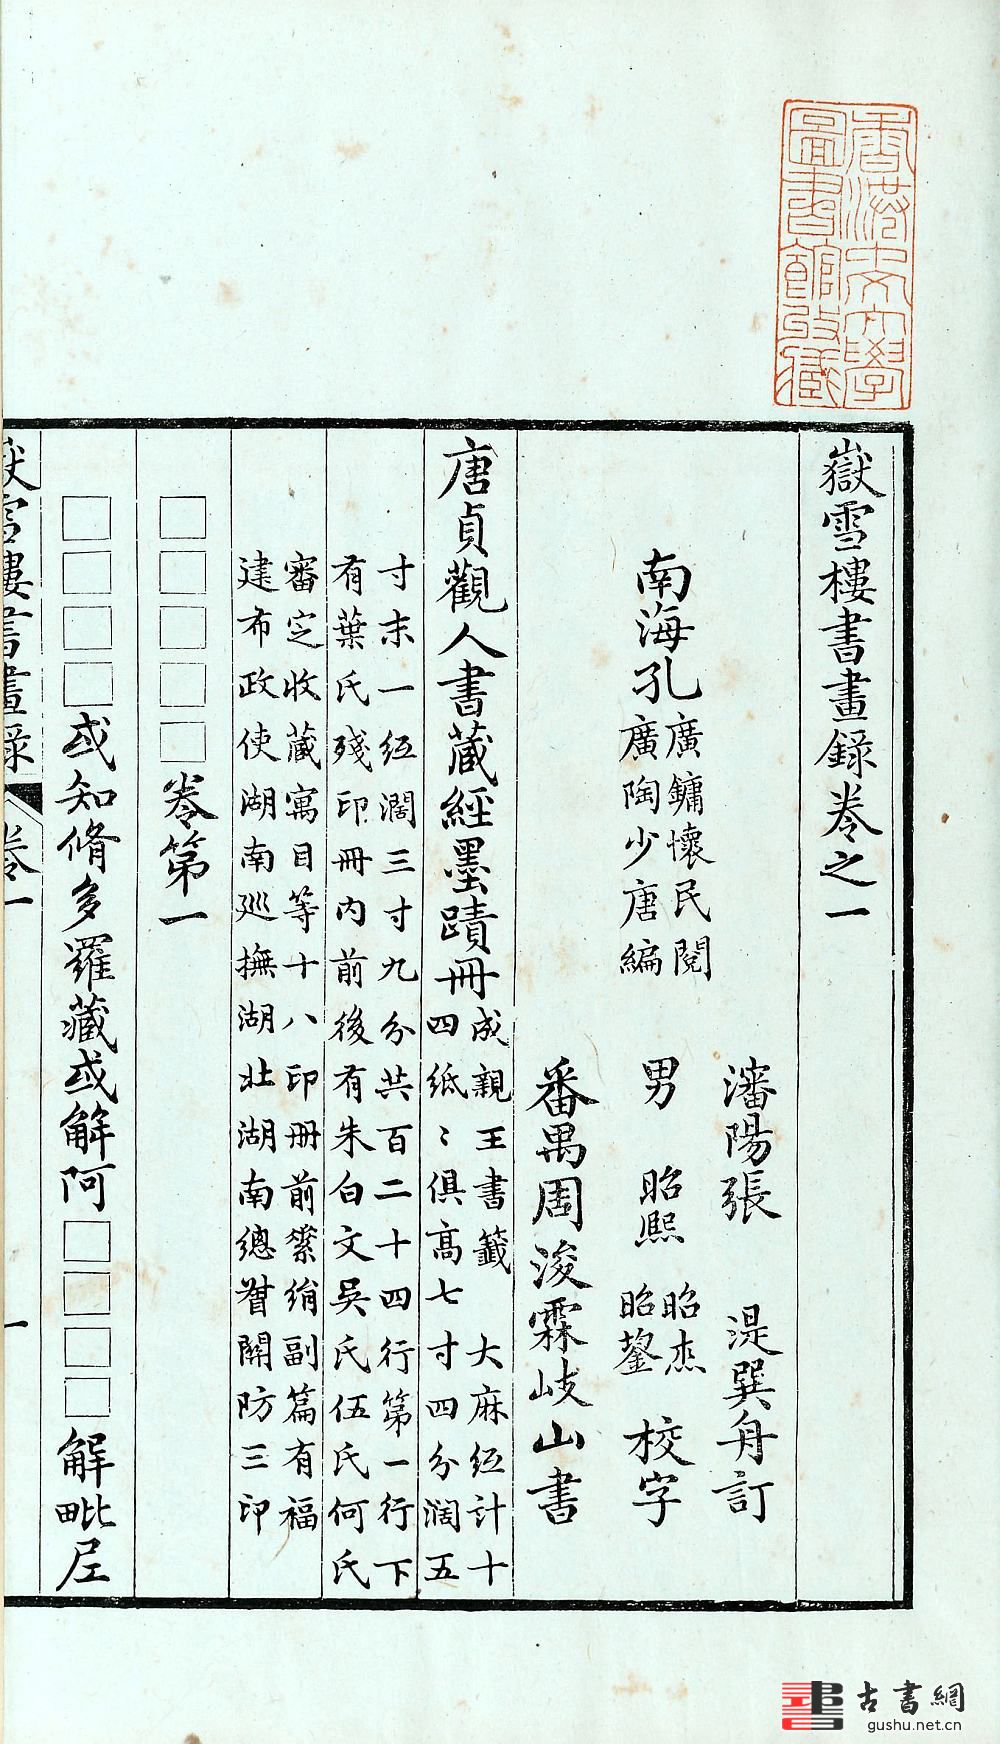 香港中文大學
圖書館收藏
嶽雪樓書畫錄卷之一
瀋陽張　湜巽舟訂
南海孔
廣鏞懷民閱
廣陶少唐編
男
昭熙
昭杰
昭鋆
校字
番禺周浚霖岐山書
唐貞觀人書藏經墨蹟冊
成親王書籤　大麻紙計十
四紙〻俱高七寸四分濶五
寸末一紙濶三寸九分共百二十四行第一行下
有葉氏殘印冊內前後有朱白文吳氏伍氏何氏
審定收藏寓目等十八印冊前綾絹副篇有福
建布政使湖南巡撫湖北湖南總督關防三印
□□□□□卷第一
□□□□或知脩多羅藏或解阿□□□□解毗尼
嶽雪樓書畫錄　卷一　一
古書網
gushu.net.cn